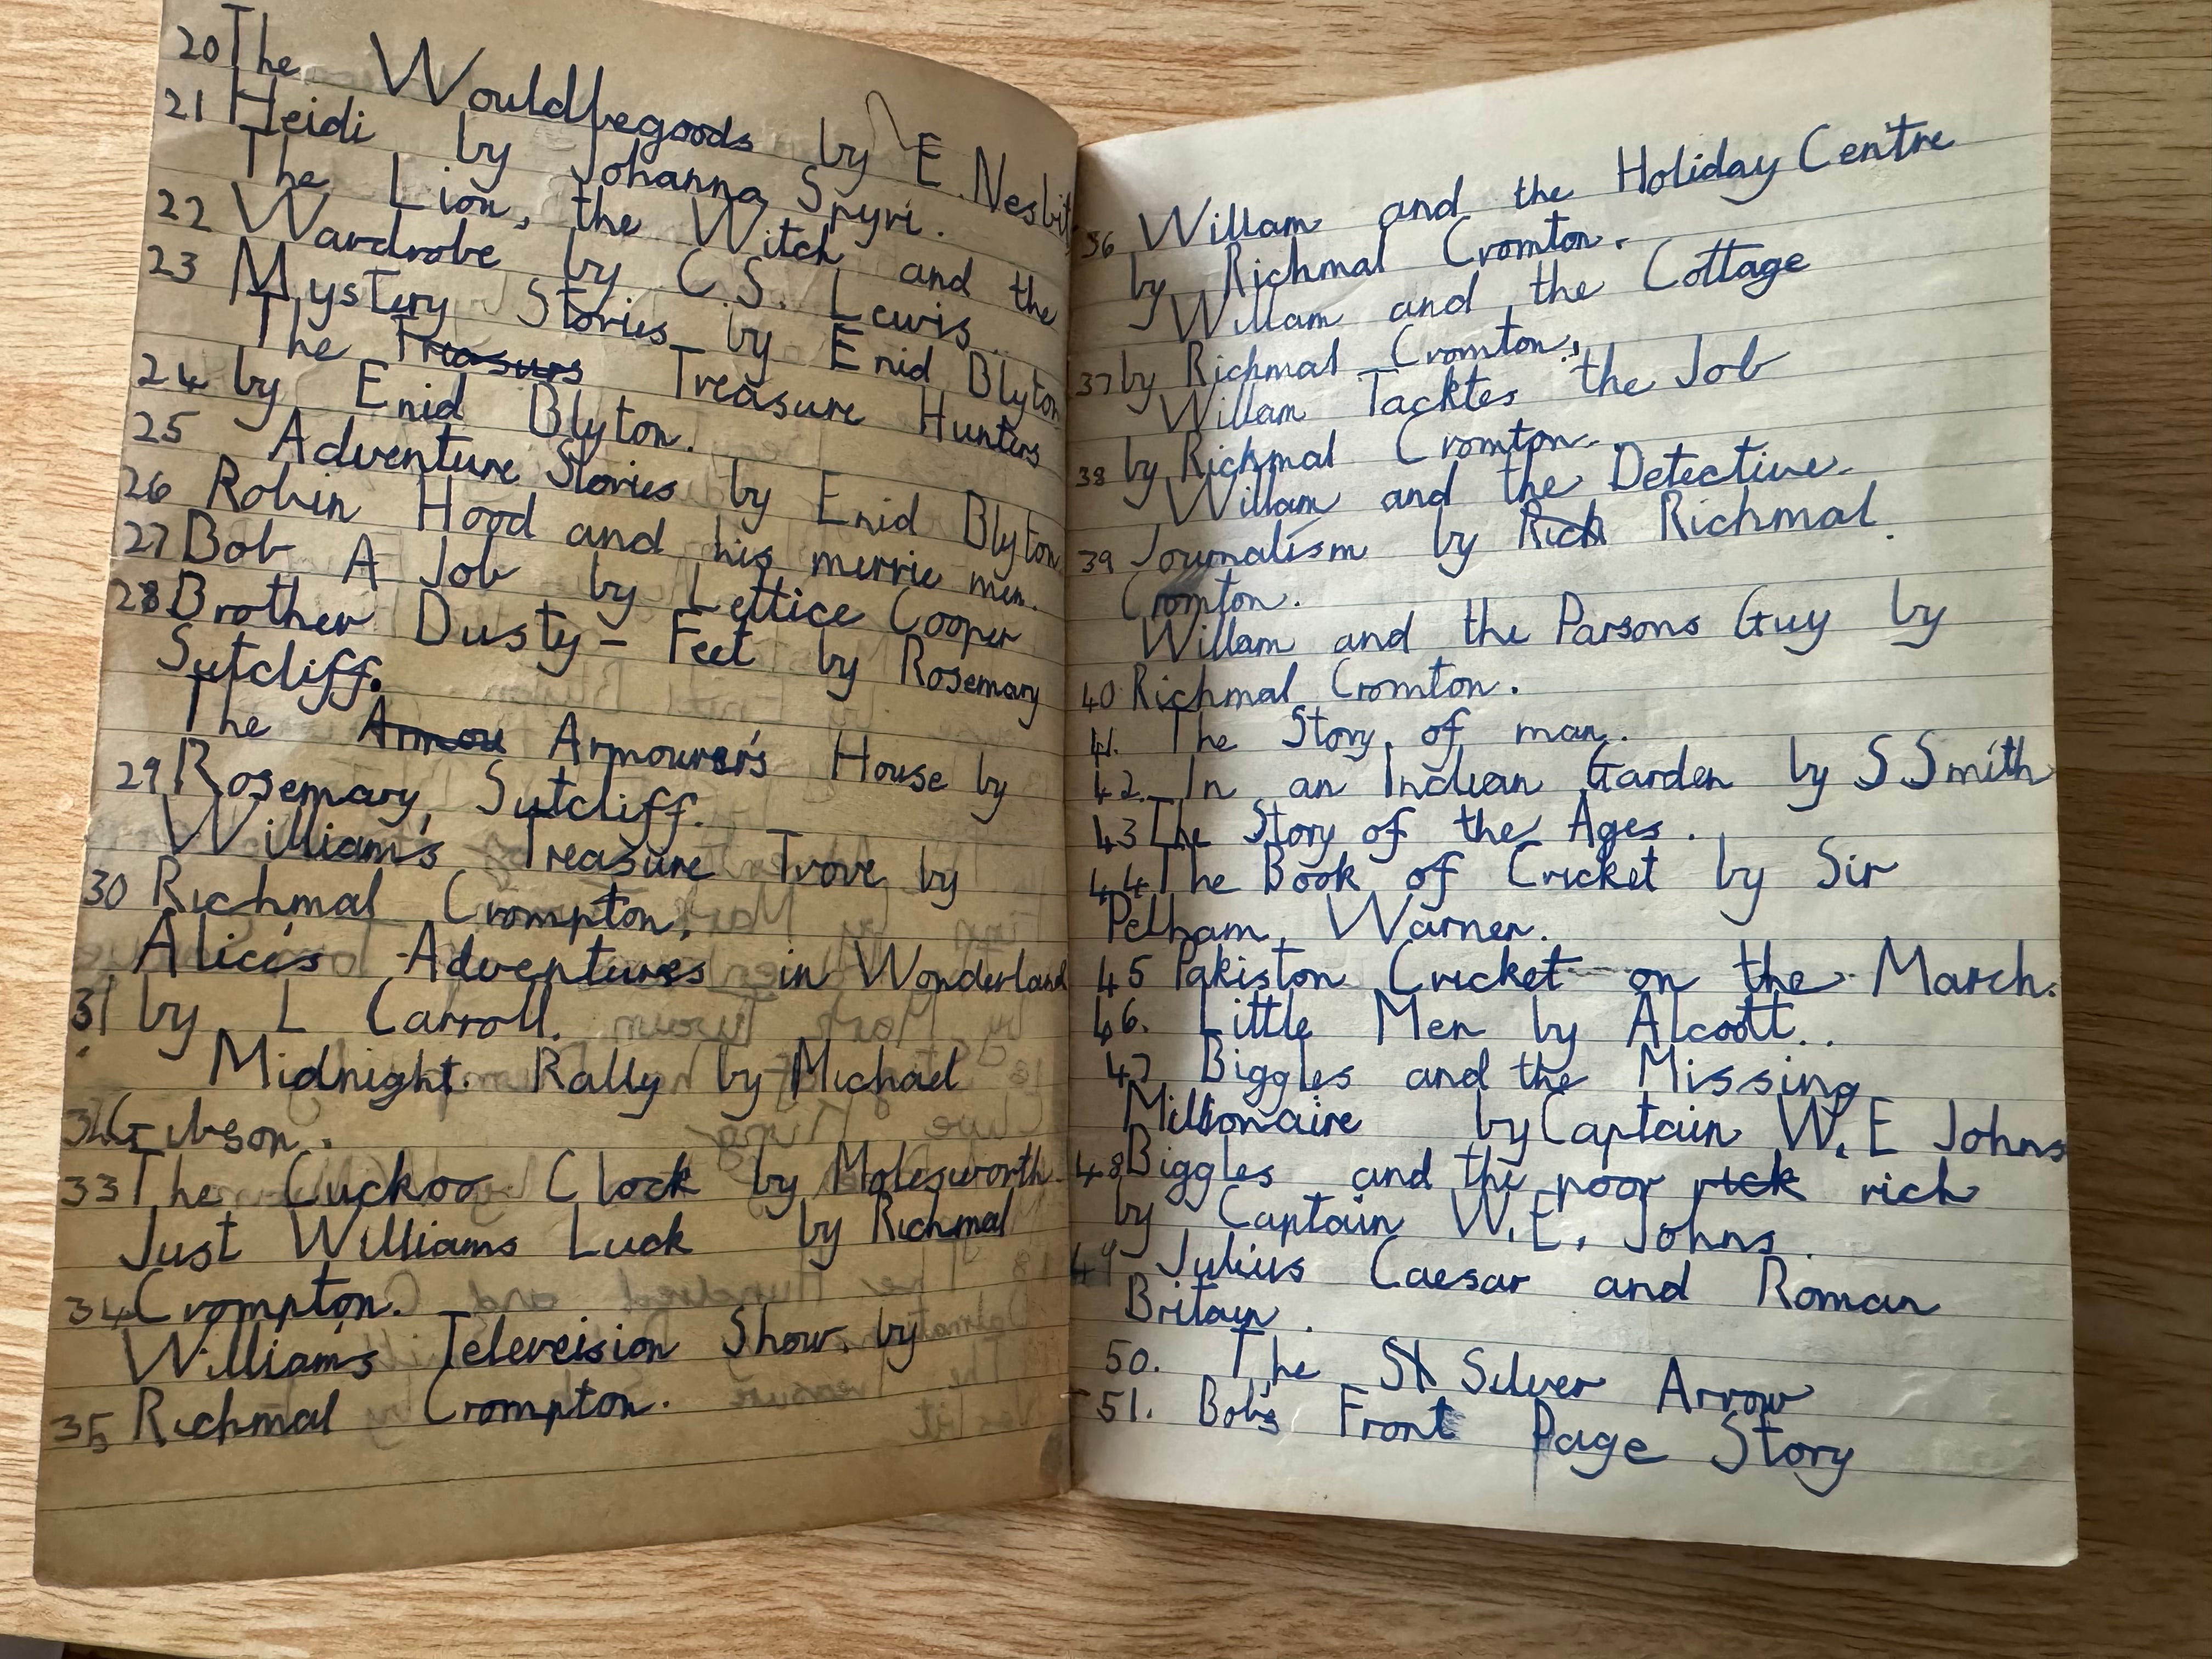 20 The Wouldbegoods by E. Nesbit
21 Heidi by Johanna Spyri.
The Lion, the Witch and the
22 Wardrobe by C.S. Lewis.
23 Mystery Stories by Enid Blyton
The Treasurs Treasure Hunters
24 by Enid Blyton.
25 Adventure Stories by Enid Blyton
26 Robin Hood and his merrie men.
27 Bob A Job by Lettice Cooper
28 Brother Dusty-Feet by Rosemary
Sutcliff.
The Armou Armourer's House by
29 Rosemary Sutcliff.
William's Treasure Trove by
30 Richmal Crompton.
Alice's Adventures in Wonderland
31 by L Carroll.
Midnight Rally by Michael
32 Gibson.
33 The Cuckoo Clock by Molesworth
Just Williams Luck by Richmal
34 Crompton.
William's Televeision Show by
35 Richmal Crompton.
36 Willam and the Holiday Centre
by Richmal Cromton.
Willam and the Cottage
37 by Richmal Cromton.
Willam Tackles the Job
38 by Richmal Cromton.
Willam and the Detective
39 Journalism by Rich Richmal
Cromton.
Willam and the Parsons Guy by
40 Richmal Cromton.
41. The Story of man.
42. In an Indian Garden by S Smith
43 The Story of the Ages.
44 The Book of Cricket by Sir
Pelham Warner.
45 Pakiston Cricket on the March.
46. Little Men by Alcoott.
47 Biggles and the Missing
Millionaire by Captain W.E Johns
48 Biggles and the poor rick rich
by Captain W.E. Johns.
49 Julius Caesar and Roman
Britain.
50. The Sl Silver Arrow
51. Bob's Front Page Story